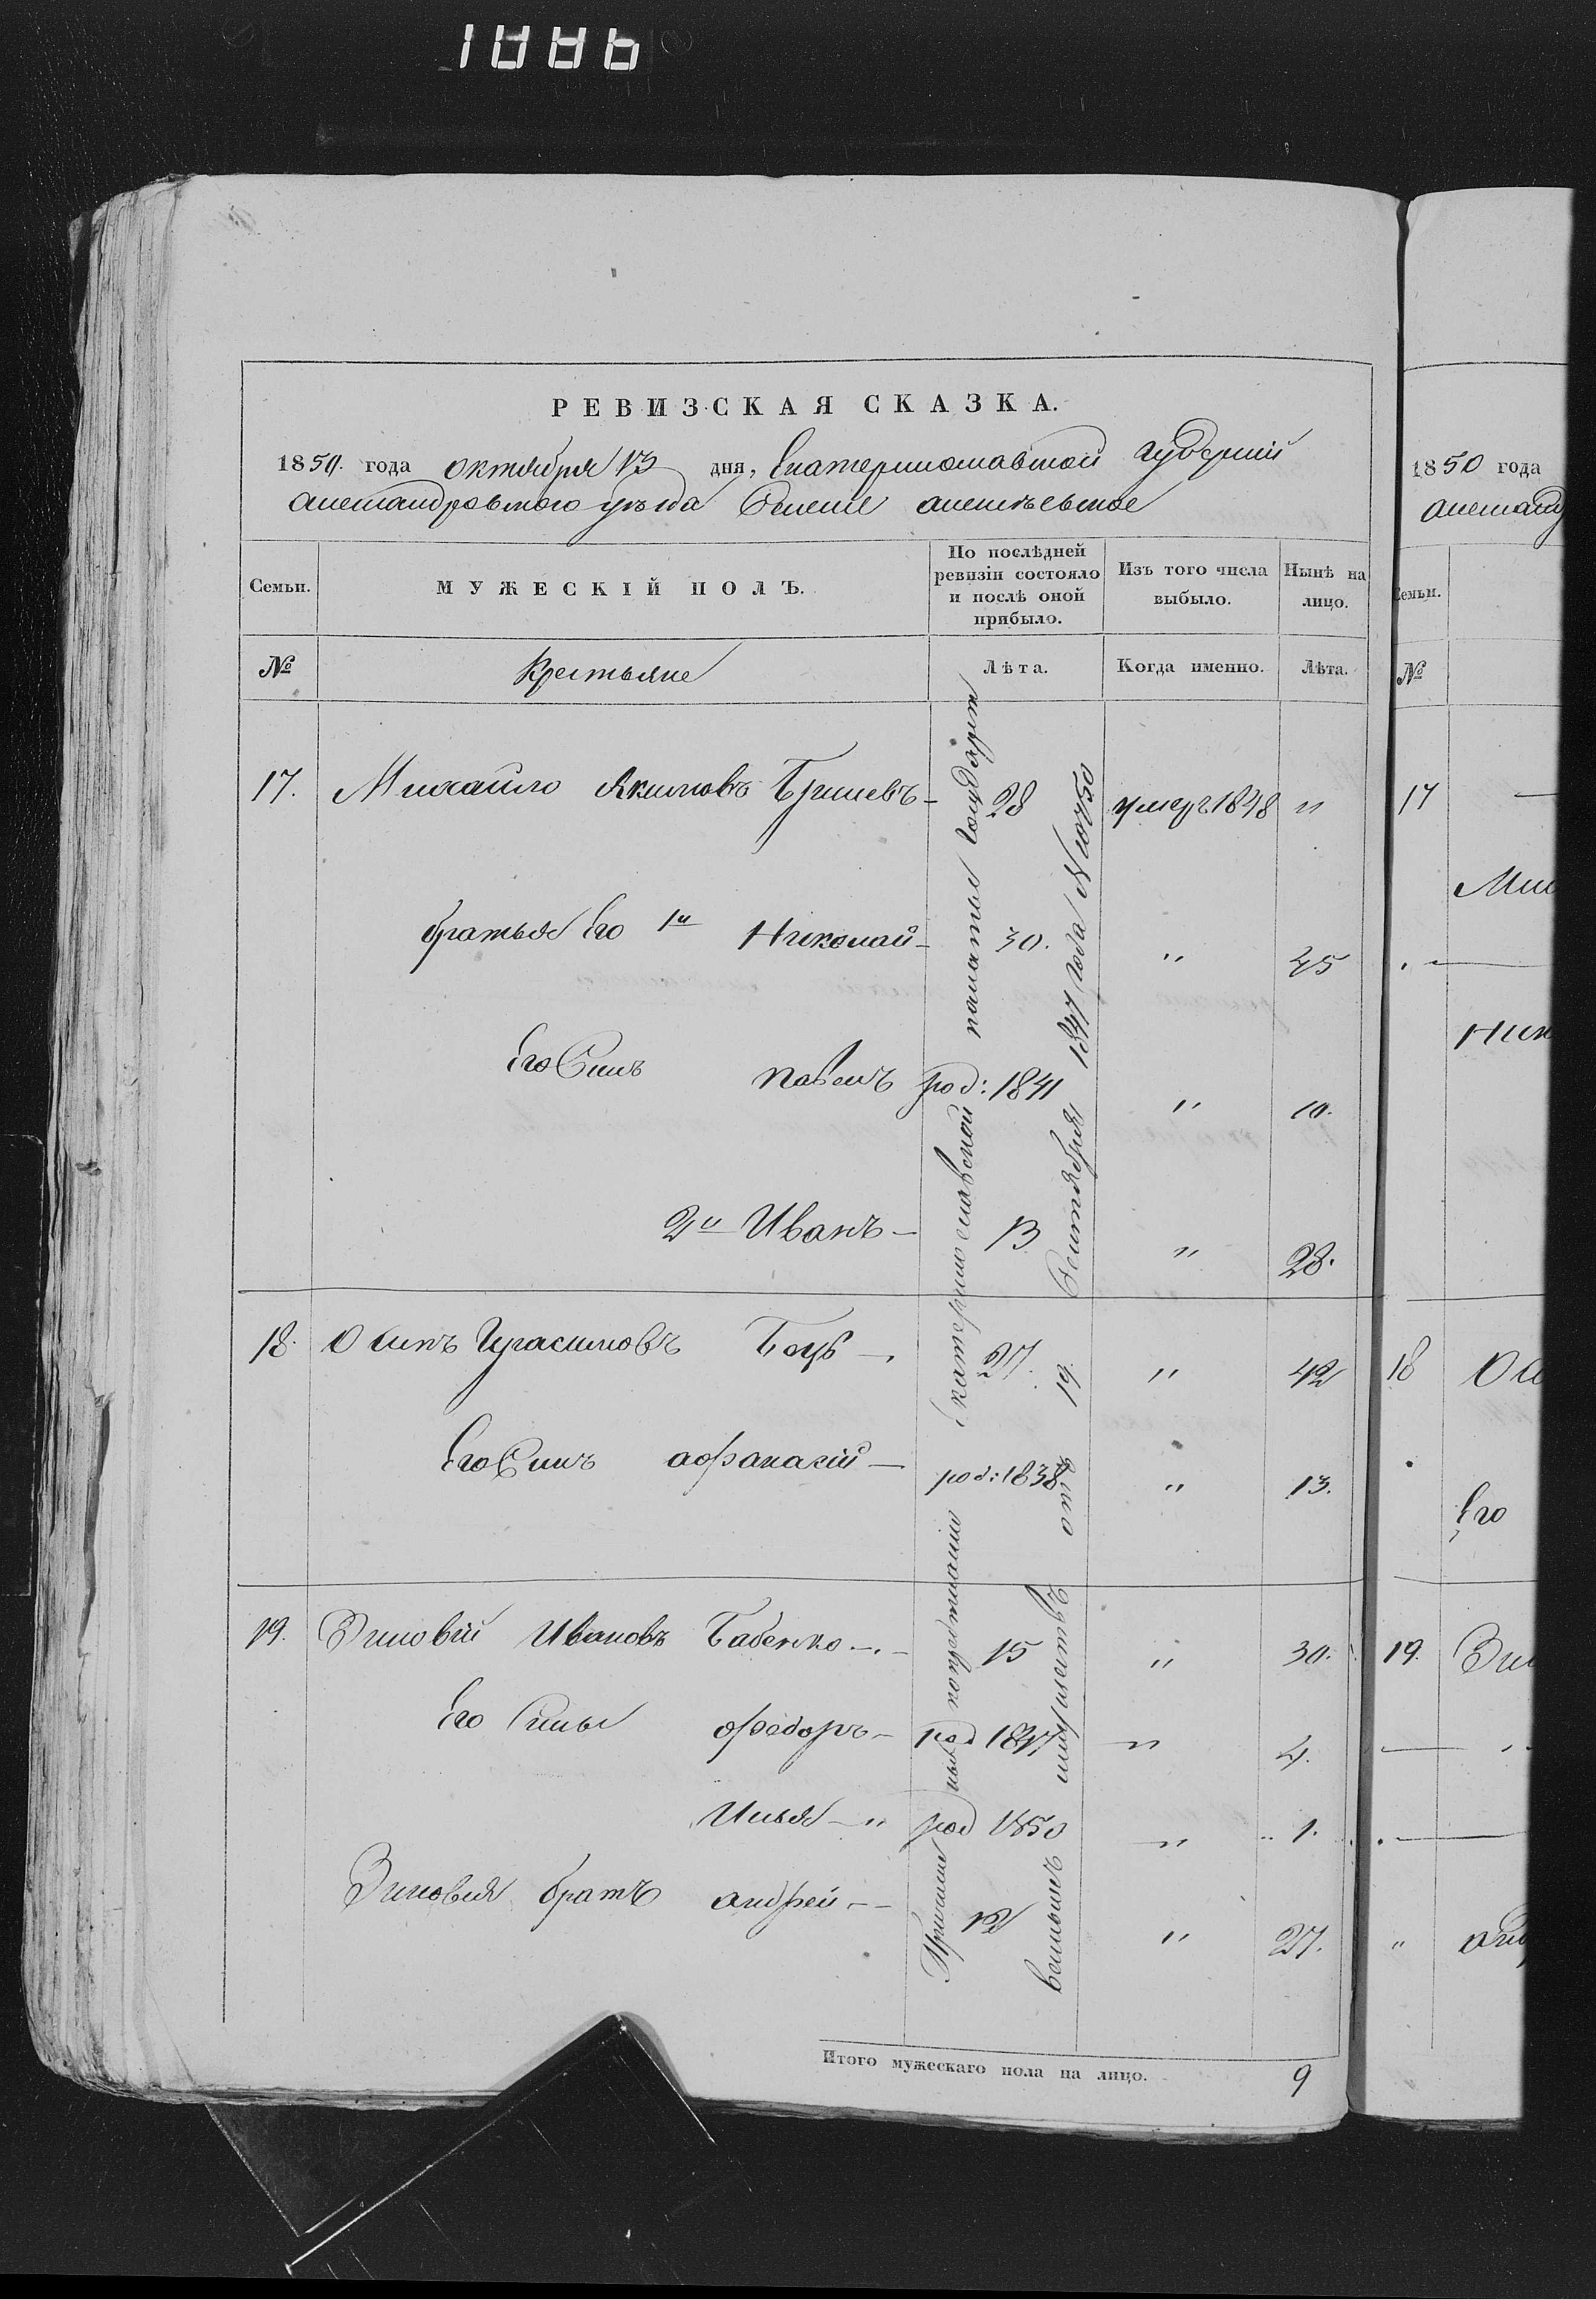 РЕВИЗСКАЯ СКАЗКА.
1850. года октября 13 дня, Екатеринославской губерніи
александровского уезда Селенie алексѣевское
Семьи. МУЖЕСКІЙ ПОЛЪ. По послѣдней ревизіи состояло и послѣ оной прибыло. Изъ того числа выбыло. Нынѣ на лицо.
№ Крестьяне Лѣта. Когда именно. Лѣта.
17. Михайло Якимовъ 28 умеръ 1848 "
братья Его 1й Николай - 30. " 45
Его Сынъ павелъ род: 1841 " 10.
2й Иванъ - 13 " 28.
18. Осипъ Герасимовъ 27. " 42
Его Сынъ афанасій - род: 1838 " 13.
19. Зиновій Ивановъ Бабенко - 15 " 30.
Его Сыны федоръ - род 1847 " 4.
Илья - " род 1850 " 1.
Зиновия братъ андрей - 12 " 27.
Причислены по предписанию Екатеринославской палаты Государст
венныхъ имуществъ отъ 19. Сентября 1847 года №10750
Итого мужескаго пола на лицо. 9
1850 года
Семьи.
№
17
18
Его
19.